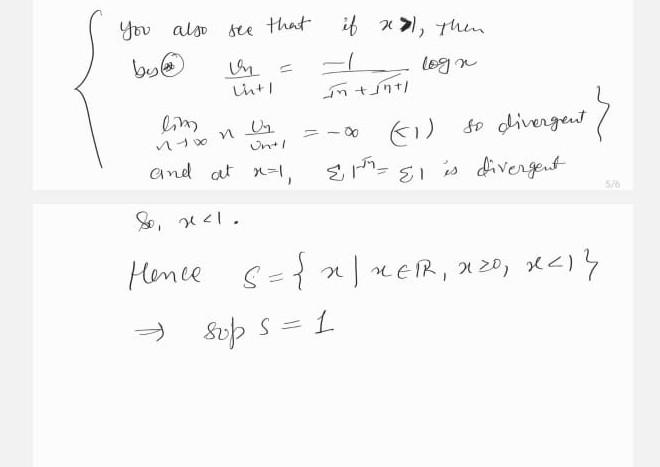 You also see that if x>1, then
log u_n/u_n+1 = -1/(√n + √n+1) log x
lim n→∞ n u_n/u_n+1 = -∞ (<1) so divergent
and at x=1, Σ1^√n = Σ1 is divergent
5/6
So, x<1.
Hence S = { x | x∈ℝ, x≥0, x<1 }
⇒ sup S = 1